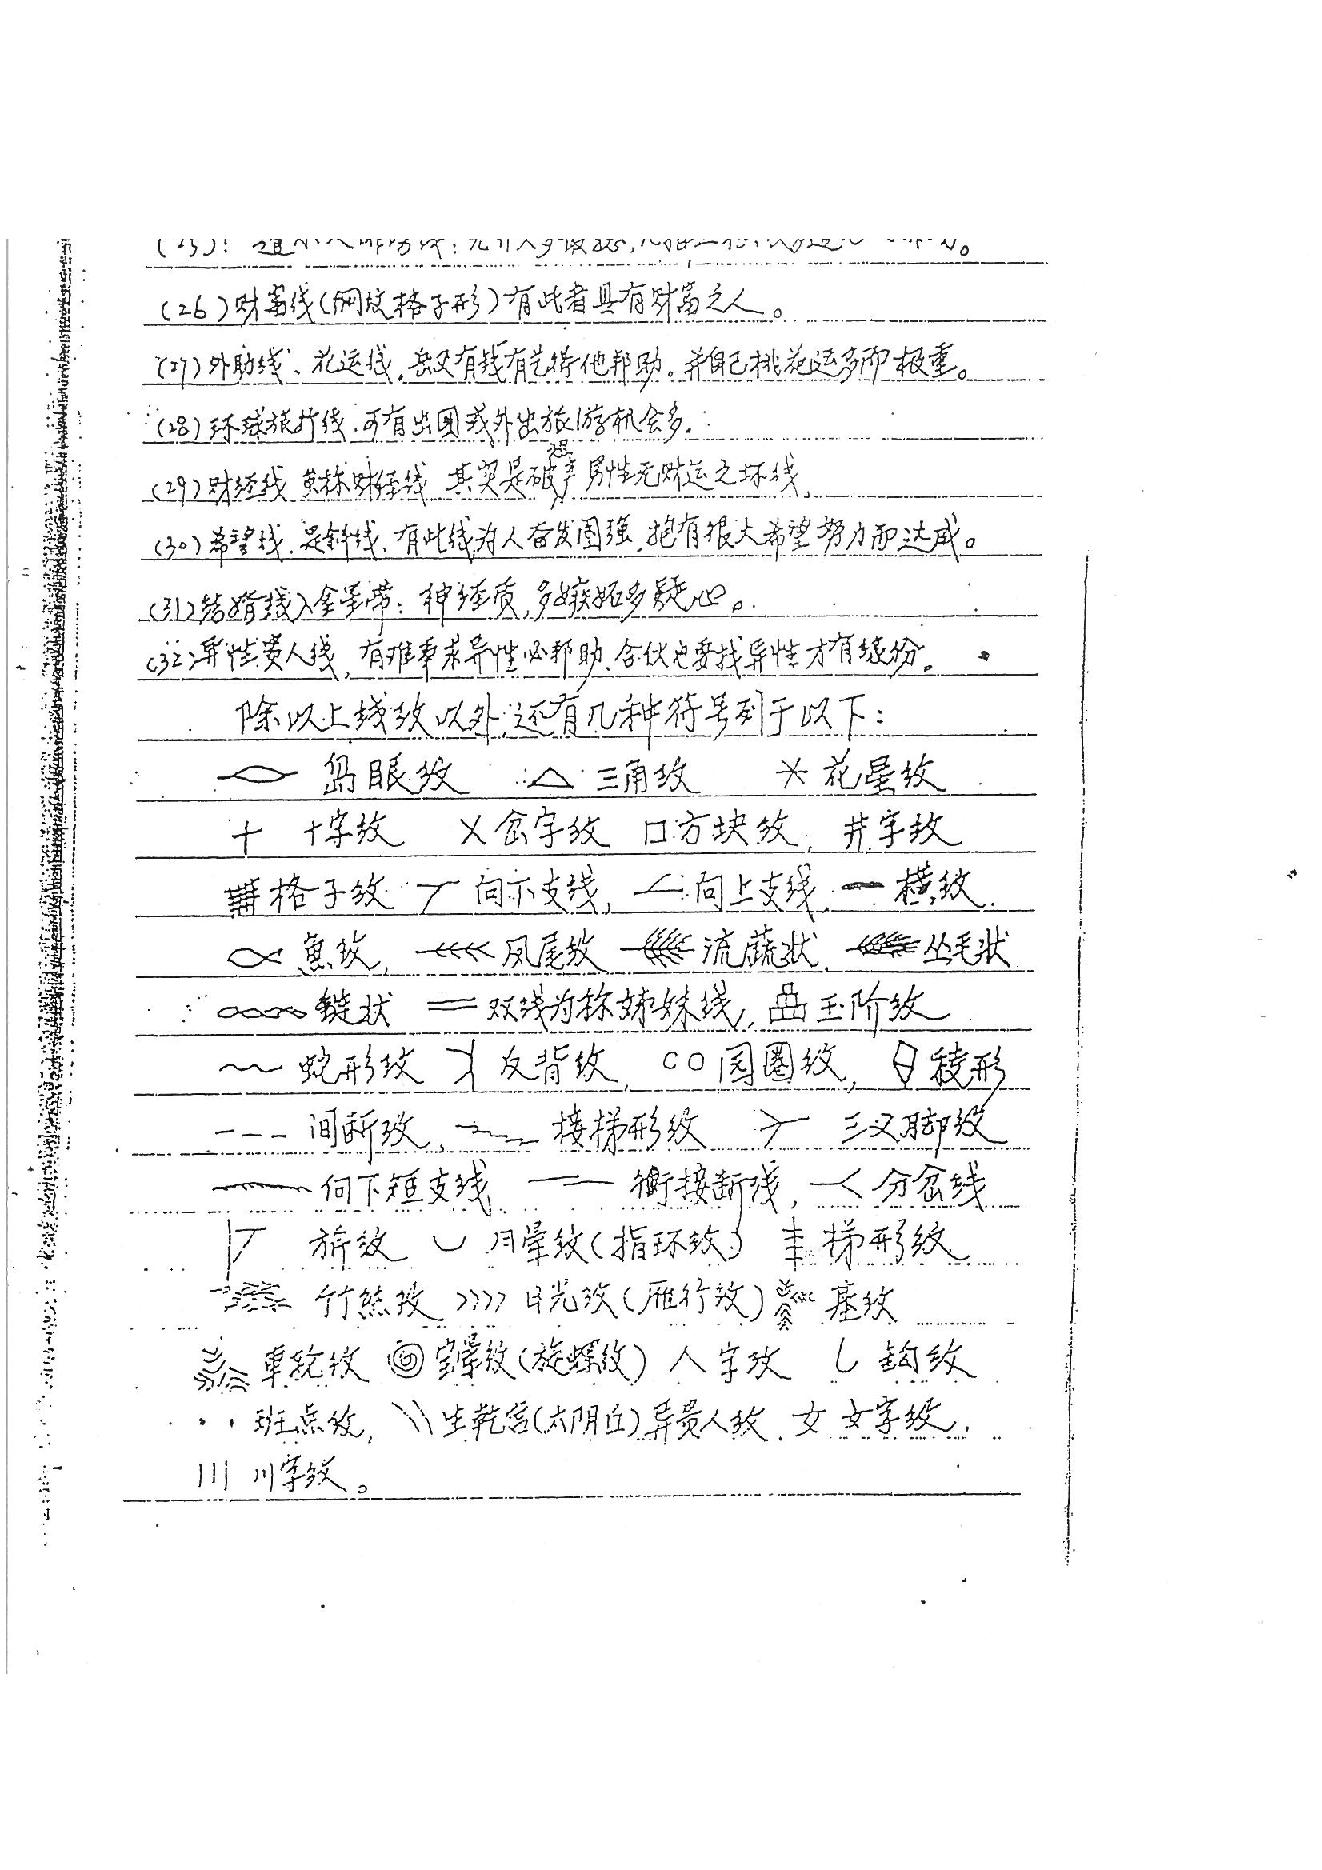 (26)财富线(网纹格子形)有此者具有财富之人。
(27)外助线、花运线,岳又有钱有其他帮助,并自己桃花运多而极重。
(28)环球旅行线.可有出国或外出旅游机会多.
(29)财经线 英称财经线 其实是破 男性无财运之坏线,
(30)希望线.是斜线.有此线为人奋发图强.抱有很大希望努力而达成。
(31)结婚线入金星带:神经质,多嫉妒多疑心。
(32)异性贵人线,有难事求异性必帮助.合伙也要找异性才有缘份。
除以上线纹以外,还有几种符号列于以下:
岛眼纹 三角纹 花星纹
十 十字纹 X 字纹 口方块纹, 井字纹
格子纹 向下支线, 向上支线, 横纹.
鱼纹, 凤尾纹 流蔬状, 丛毛状
链状 双线为称姊妹线, 玉阶纹
蛇形纹 反背纹, 园圈纹, 棱形
间断纹, 接梯形纹 三叉脚纹
向下短支线 衔接断线, 分岔线
旂纹 月晕纹(指环纹) 梯形纹
竹 纹 日光纹(雁行纹) 纹
车轮纹 晕纹(旋螺纹) 人字纹 钩纹
班点纹, 生乾宫(太阴丘)异贵人纹. 女 女字纹.
川 川字纹。